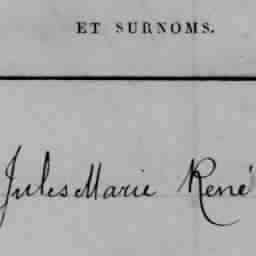 ET SURNOMS.
Jules Marie René